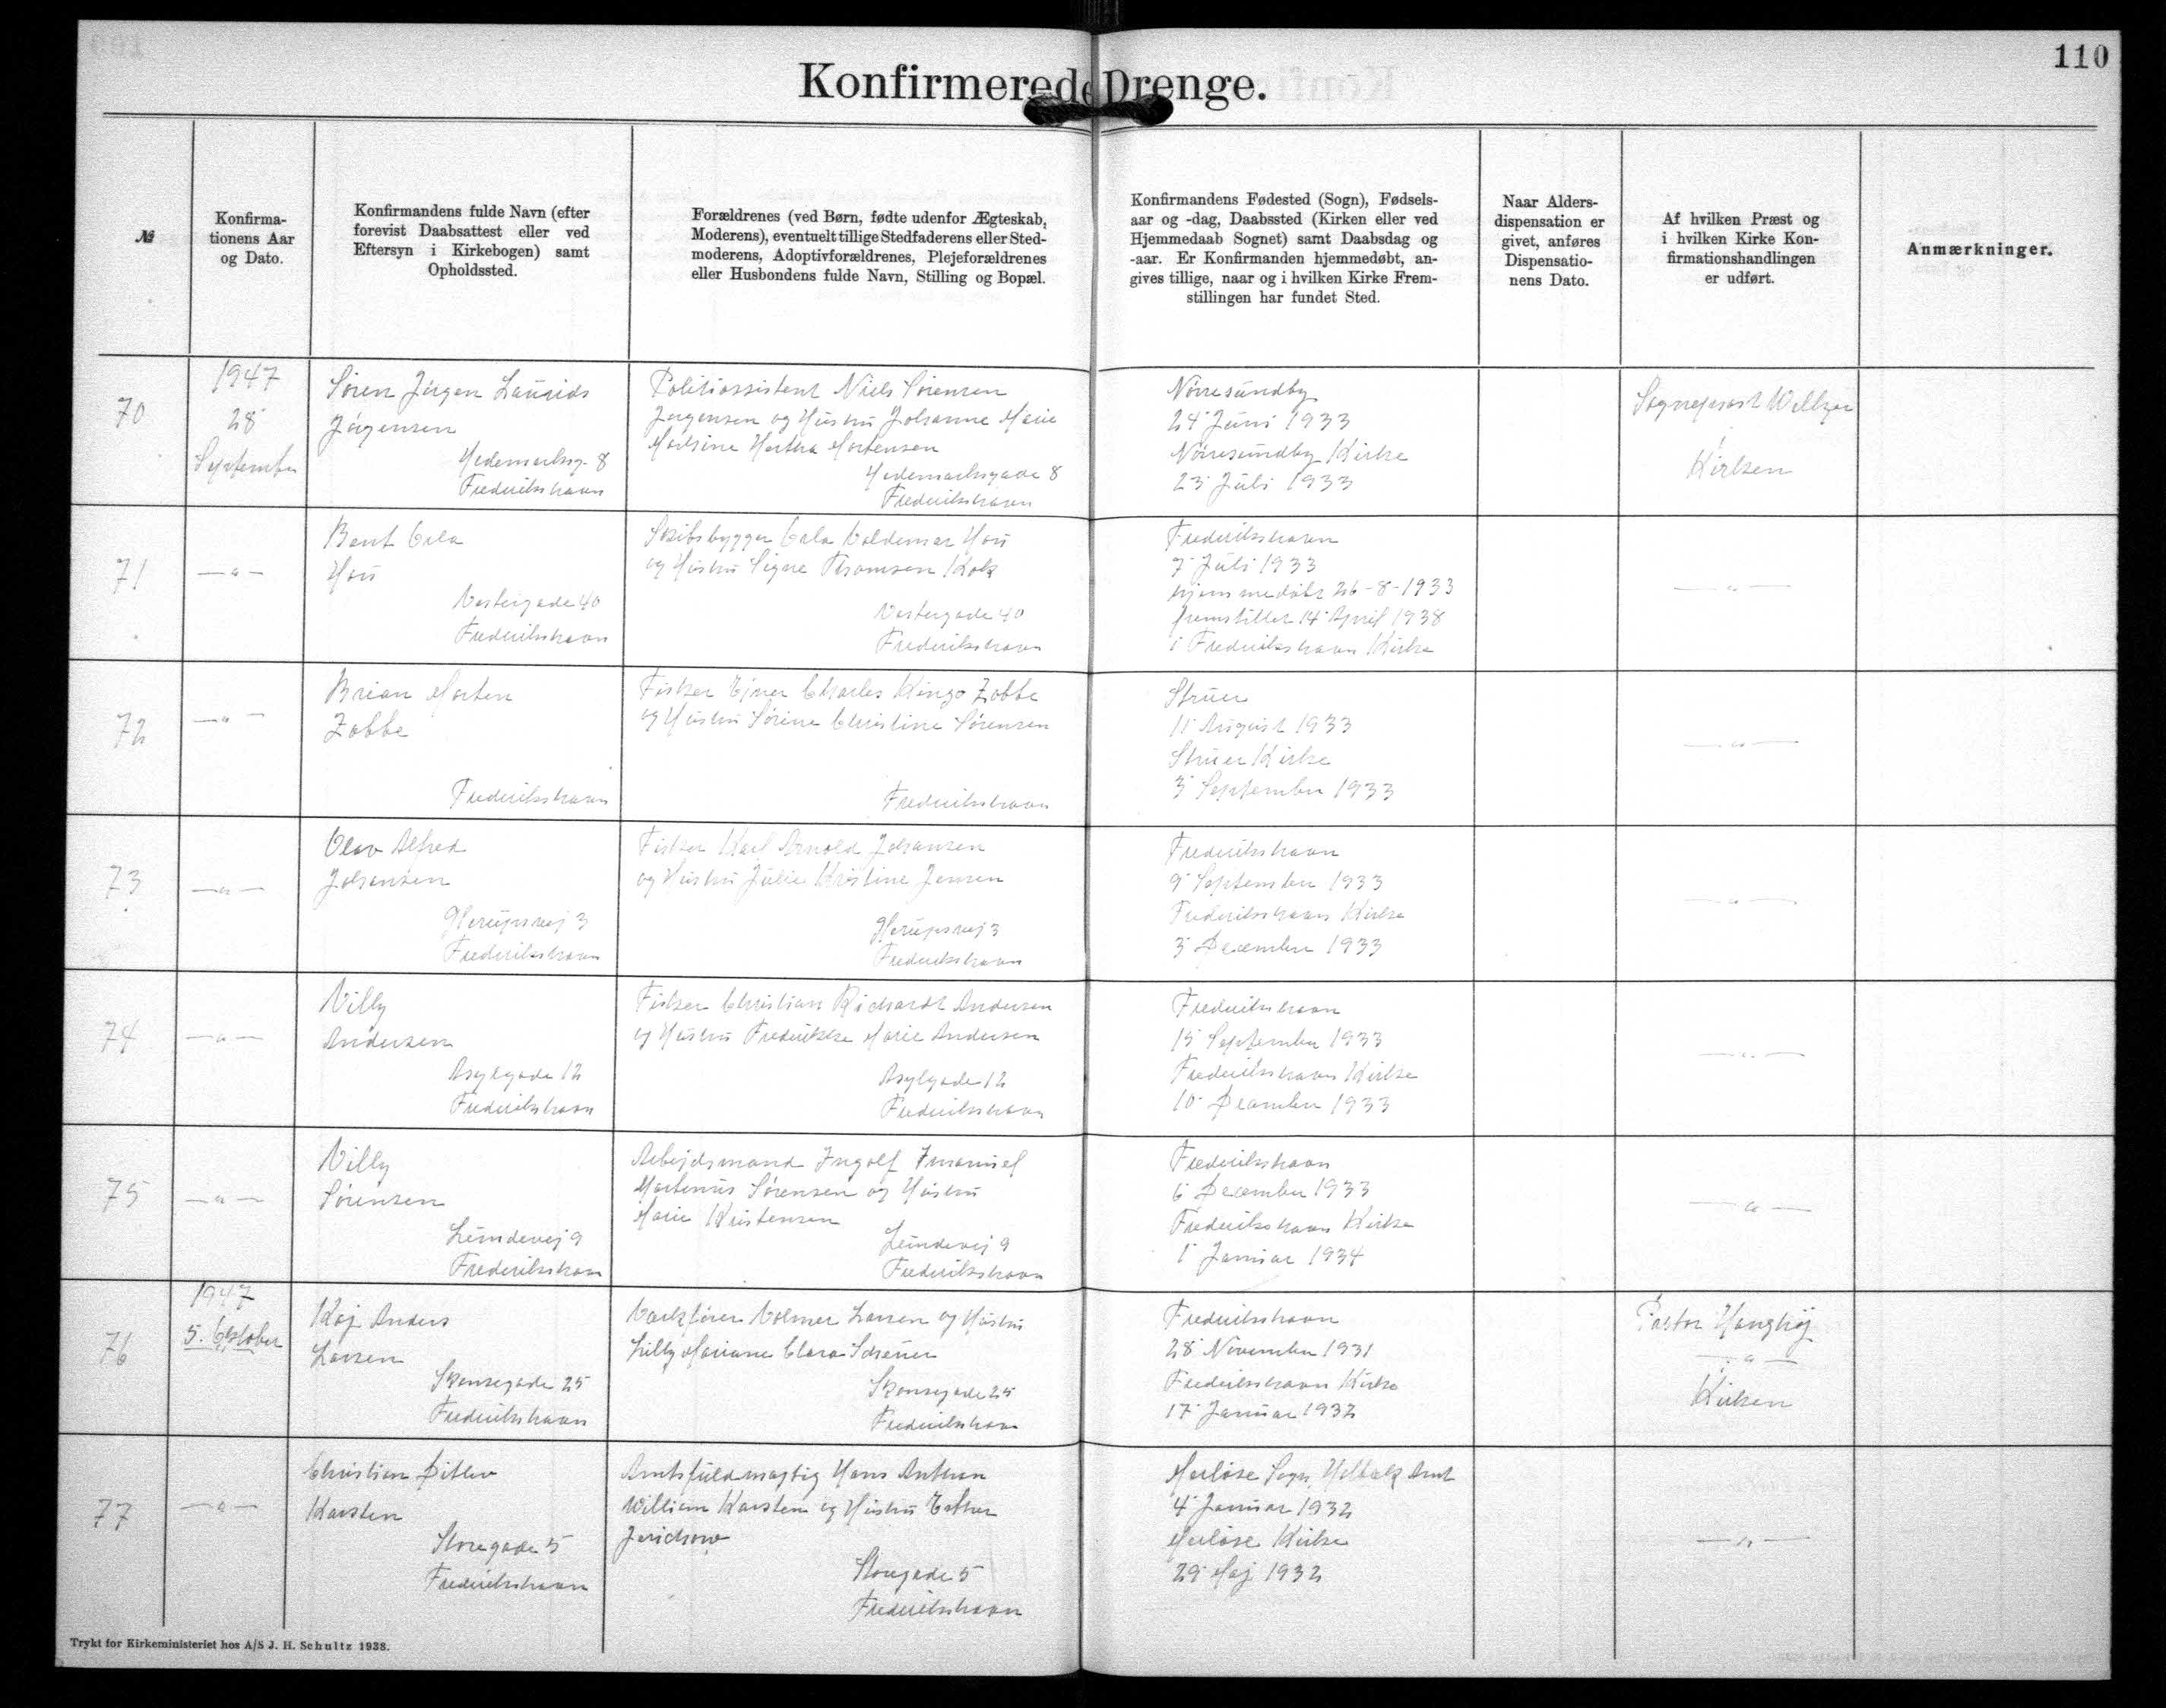 110
Konfirmerede Drenge.
№
Konfirma-
tionens Aar
og Dato.
Konfirmandens fulde Navn (efter
forevist Daabsattest eller ved
Eftersyn i Kirkebogen) samt
Opholdssted.
Forældrenes (ved Børn, fødte udenfor Ægteskab,
Moderens), eventuelt tillige Stedfaderens eller Sted-
moderens, Adoptivforældrenes, Plejeforældrenes
eller Husbondens fulde Navn, Stilling og Bopæl.
Konfirmandens Fødested (Sogn), Fødsels-
aar og -dag, Daabssted (Kirken eller ved
Hjemmedaab Sognet) samt Daabsdag og
-aar. Er Konfirmanden hjemmedøbt, an-
gives tillige, naar og i hvilken Kirke Frem-
stillingen har fundet Sted.
Naar Alders-
dispensation er
givet, anføres
Dispensatio-
nens Dato.
Af hvilken Præst og
i hvilken Kirke Kon-
firmationshandlingen
er udført.
Anmærkninger.
70
1947
28
September
Søren Jørgen Laurids
Jørgensen
Hedemarksg. 8
Frederikshavn
Politiassistent Niels Sørensen
Jørgensen og Hustru Johanne Marie
Martine Hertha Mortensen
Hedemarksgade 8
Frederikshavn
Nørresundby
24 Juni 1933
Nørresundby Kirke
23 Juli 1933
Sognepræst
i
Kirken
71
— " —
Bent Orla
Hou
Vestergade 40
Frederikshavn
Skibsbygger Orla Valdemar Hou
og Hustru Signe Thomsen Kolk
Vestergade 40
Frederikshavn
Frederikshavn
7 Juli 1933
hjemmedøbt 26-8-1933
fremstillet 14 April 1938
i Frederikshavn Kirke
— " —
72
— " —
Brian Morten
Zobbe
Frederikshavn
Fisker Ejner Charles Kingo Zobbe
og Hustru Sørine Christine Sørensen
Frederikshavn
Struer
11 August 1933
Struer Kirke
3 September 1933
— " —
73
— " —
Olav Alfred
Johansen
Hørupsvej 3
Frederikshavn
Fisker Karl Arnold Johansen
og Hustru Julie Kristine Jensen
Hørupsvej 3
Frederikshavn
Frederikshavn
9 September 1933
Frederikshavn Kirke
3 December 1933
— " —
74
— " —
Villy
Andersen
Asylgade 12
Frederikshavn
Fisker Christian Richardt Andersen
og Hustru Frederikke Marie Andersen
Asylgade 12
Frederikshavn
Frederikshavn
15 September 1933
Frederikshavn Kirke
10 December 1933
— " —
75
— " —
Villy
Sørensen
Lundevej 9
Frederikshavn
Arbejdsmand Ingolf Imanuel
Martinus Sørensen og Hustru
Marie Kristensen
Lundevej 9
Frederikshavn
Frederikshavn
6 December 1933
Frederikshavn Kirke
1 Januar 1934
— " —
76
1947
5. Oktober
Kaj Anders
Larsen
Skansegade 25
Frederikshavn
Værkfører Volmer Larsen og Hustru
Lilly Mariane Clara
Skansegade 25
Frederikshavn
Frederikshavn
28 November 1931
Frederikshavn Kirke
17 Januar 1932
Pastor Hanghøj
— " —
Kirken
77
— " —
Christian Ditlev
Karsten
Storegade 5
Frederikshavn
Amtsfuldmægtig Hans Anthon
William Karsten og Hustru Esther
Jerichow
Storegade 5
Frederikshavn
Merløse Sogn, Holbæk Amt
4 Januar 1932
Merløse Kirke
29 Maj 1932
— " —
Trykt for Kirkeministeriet hos A/S J. H. Schultz 1938.